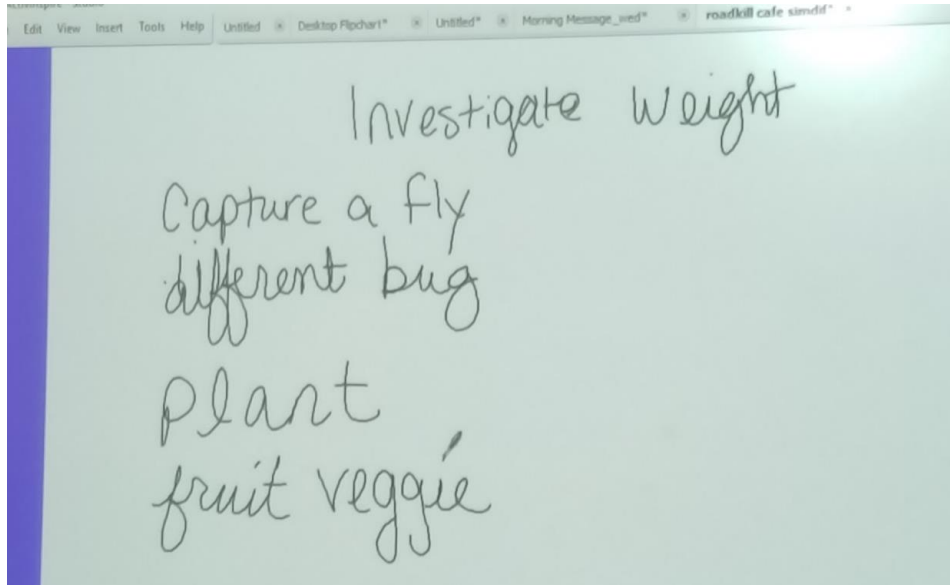 Edit View Insert Tools Help Untitled Desktop Flipchart* Untitled* Morning Message_wed* roadkill cafe simdif*
Investigate Weight
Capture a fly
different bug
plant
fruit veggie